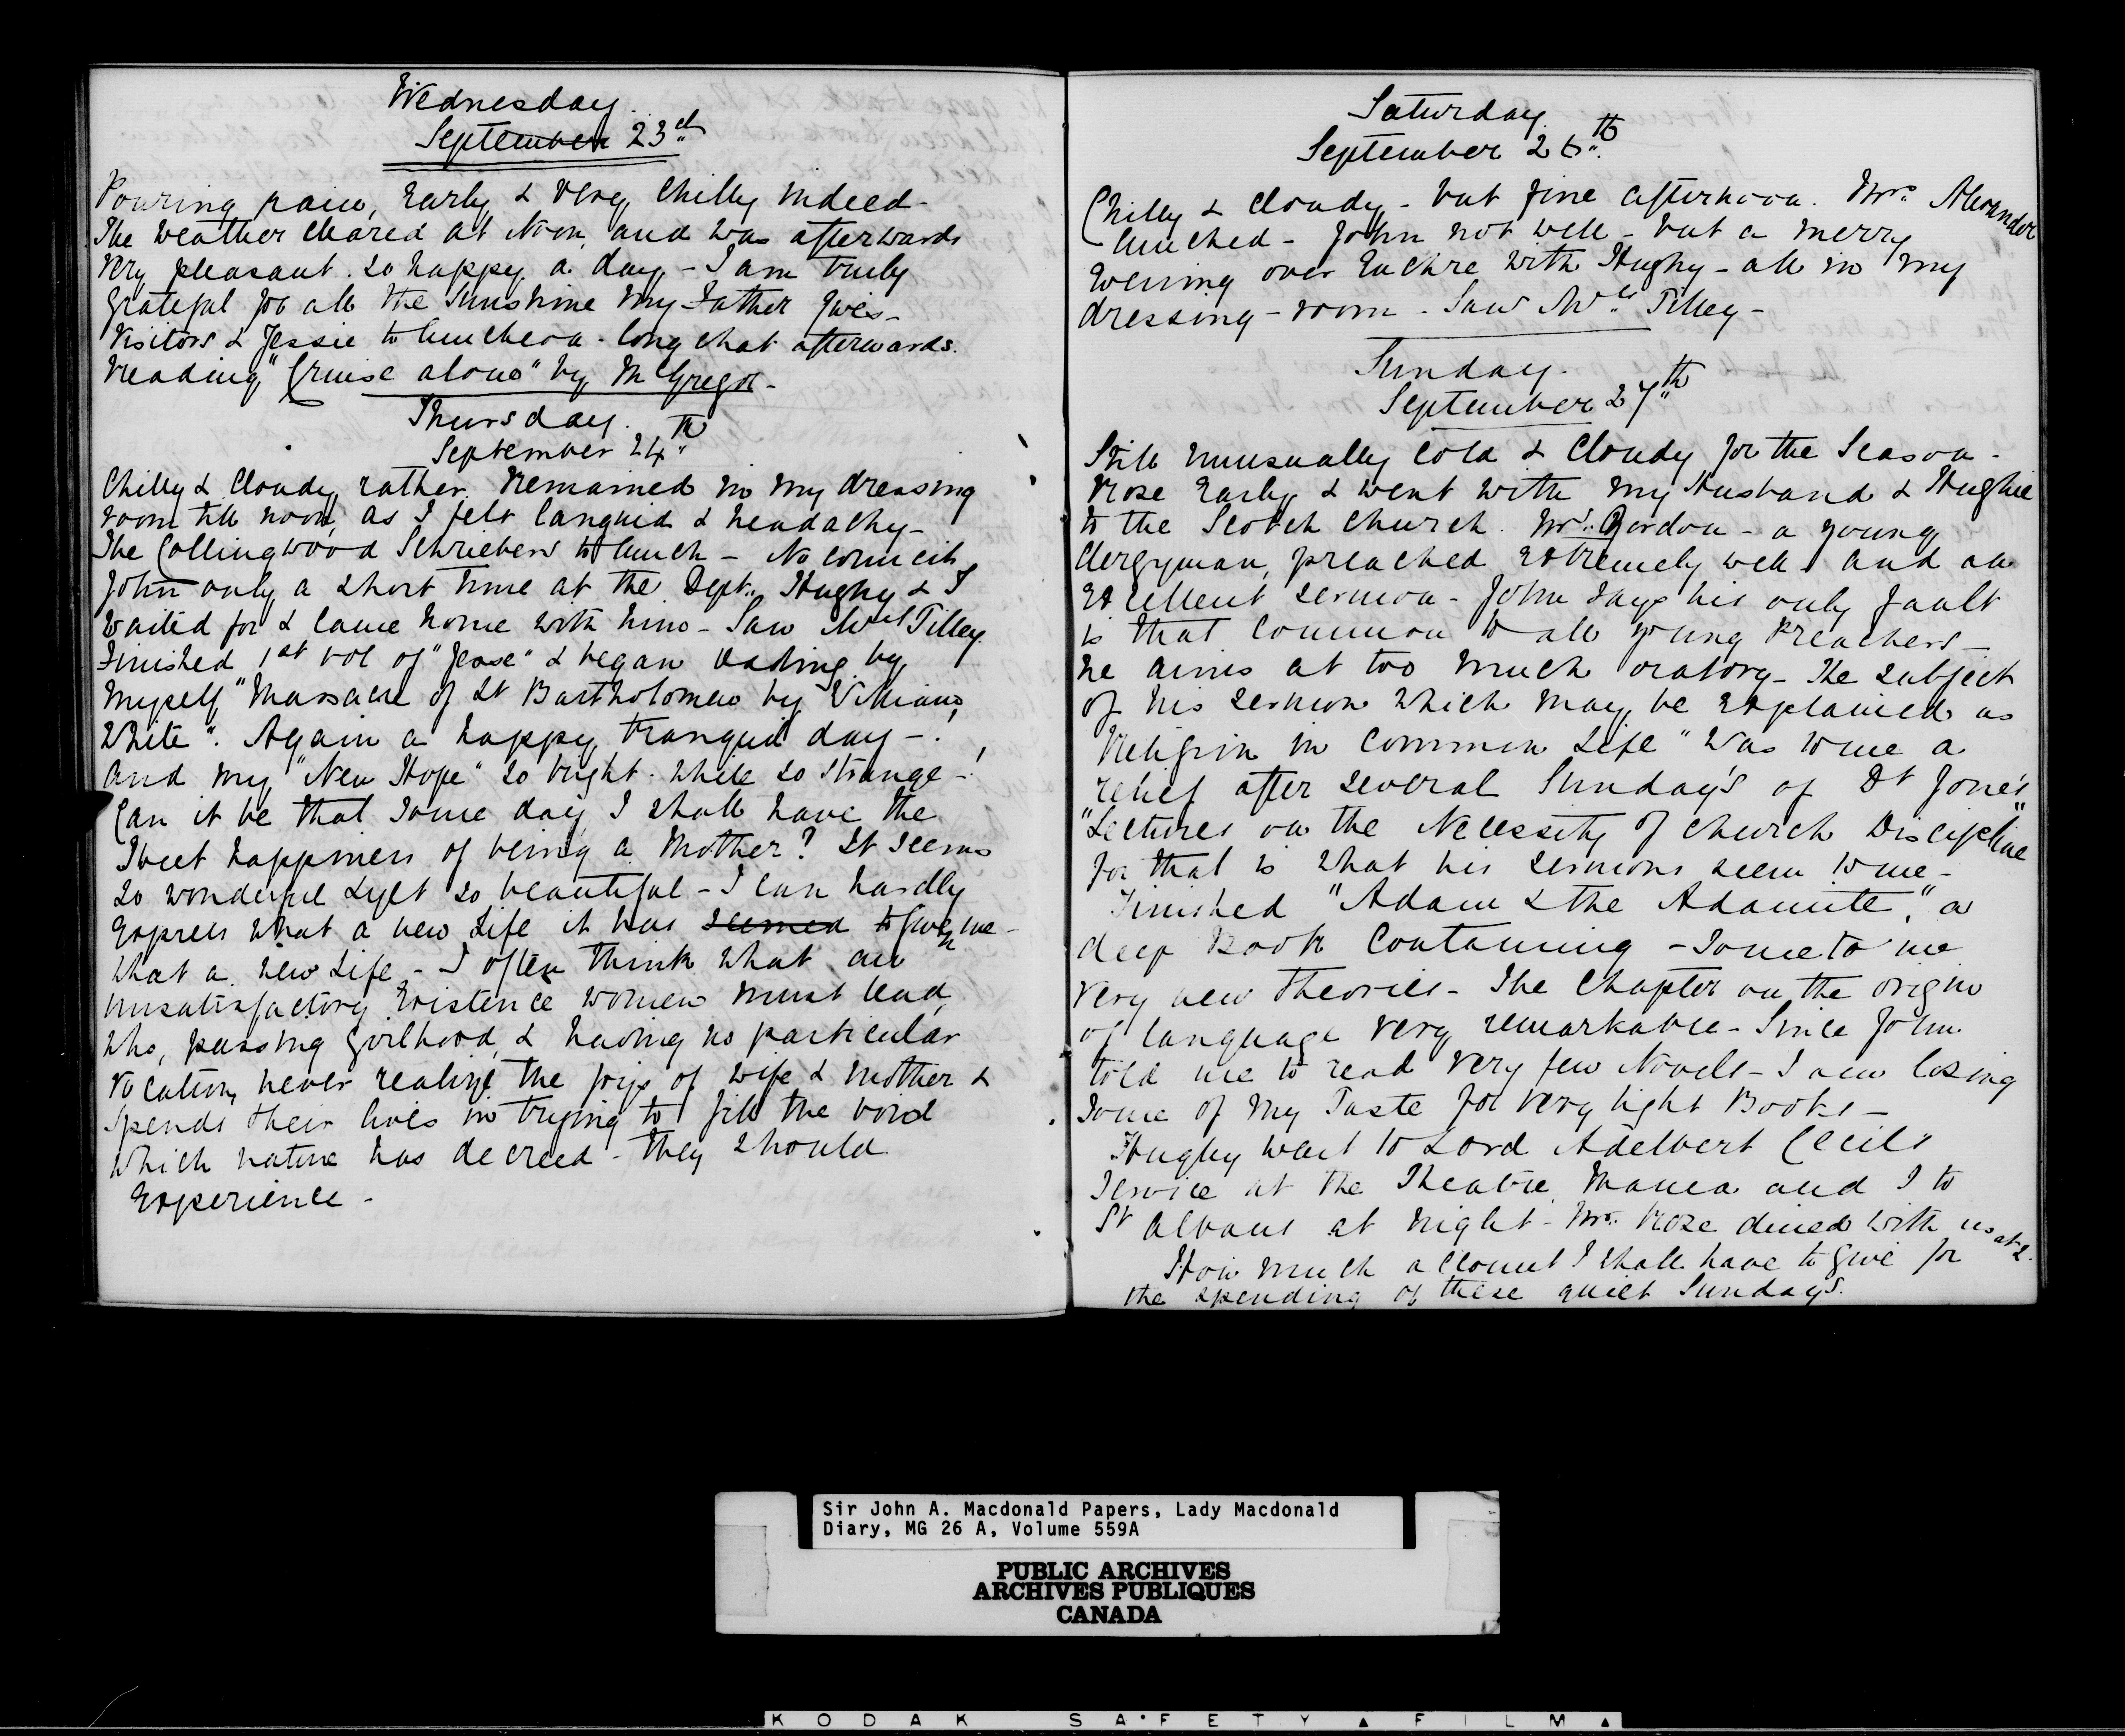 Wednesday.
September 23rd
Pouring rain, Early & very chilly indeed -
The weather cleared at Noon, and was afterwards
very pleasant. So happy a day - I am truly
grateful for all the Sunshine my Father gives -
Visitors & Jessie to luncheon - long chat afterwards.
Reading "Cruise alone" by McGregor -
Thursday.
September 24th
Chilly & Cloudy rather. Remained in my dressing
room till noon, as I felt languid & headachy -
The Collingwood Schriebers to lunch - No council,
John only a short time at the Dept. Hughy & I
waited for & came home with him - Saw Mrs Tilley
Finished 1st vol of & began reading by
myself "Massacre of St Bartholomew by
White". Again a happy tranquil day -.
and my "New Hope" so bright. While so strange -!
Can it be that some day I shall have the
Sweet happiness of being a Mother? It seems
so wonderful & yet so beautiful - I can hardly
Express what a new Life it has seemed to given me -
What a new Life - I often think what an
unsatisfactory Existence women must lead,
who, passing Girlhood, & having no particular
vocation, never realize the joys of wife & mother &
spends their lives in trying to fill the void
which nature has decreed - they should
Experience -
Saturday.
September 26th.
Chilly & Cloudy - but fine afternoon. Mrs. Alexander
lunched - John not well - but a merry
Evening over Euchre with Hughy - all in my
dressing - room - Saw Mrs. Tilley -
Sunday.
September 27th
Still unusually Cold & Cloudy for the Season -
Rose Early & went with my Husband & Hughie
to the Scotch Church. Mr. Gordon - a young
Clergyman, preached Extremely well and an
Excellent sermon - John says his only fault
is that common to all young Preachers -
he aims at too much oratory - The subject
of his sermon which may be Explained as
Religion in Common Life" was to me a
relief after several Sunday's of Dr Jone's
"Lectures on the Necessity of Church Discipline"
for that is what his sermons seem to me -
Finished "Adam & the Adamite", a
deep Book Containing - Some to me
very new Theories - The Chapter on the origin
of language very remarkable - Since John
told me to read very few Novels - I am losing
some of my Taste for very light Books -
Hughy went to Lord Adelbert Cecil's
Service at the Theatre, Mama and I to
St Albans at night - Mr. Rose dined with us at 2.
How much account I shall have to give for
the spending of these quiet Sundays.
Sir John A. Macdonald Papers, Lady Macdonald
Diary, MG 26 A, Volume 559A
PUBLIC ARCHIVES
ARCHIVES PUBLIQUES
CANADA
KODAK SAFETY FILM